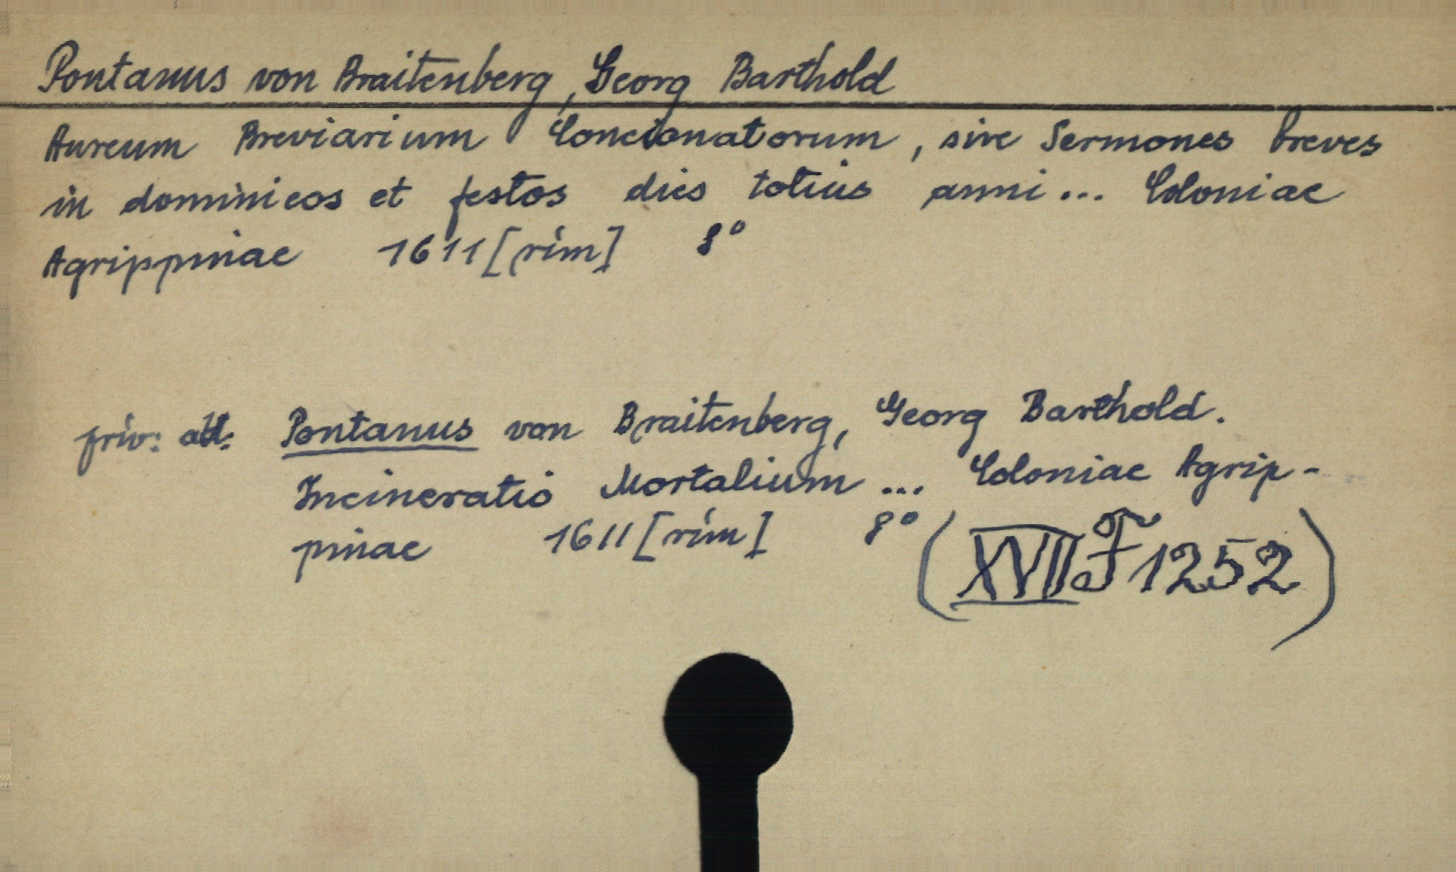 Pontanus von Braitenberg, Georg Barthold
Aureum Breviarium Concionatorum, sive Sermones breves
in dominicos et festos dies totius anni... Coloniae
Agrippinae 1611 [rím] 8°
priv: adl: Pontanus von Braitenberg, Georg Barthold.
Incineratio Mortalium ... Coloniae Agrip-
pinae 1611 [rím] 8°
(XVII J 1252)